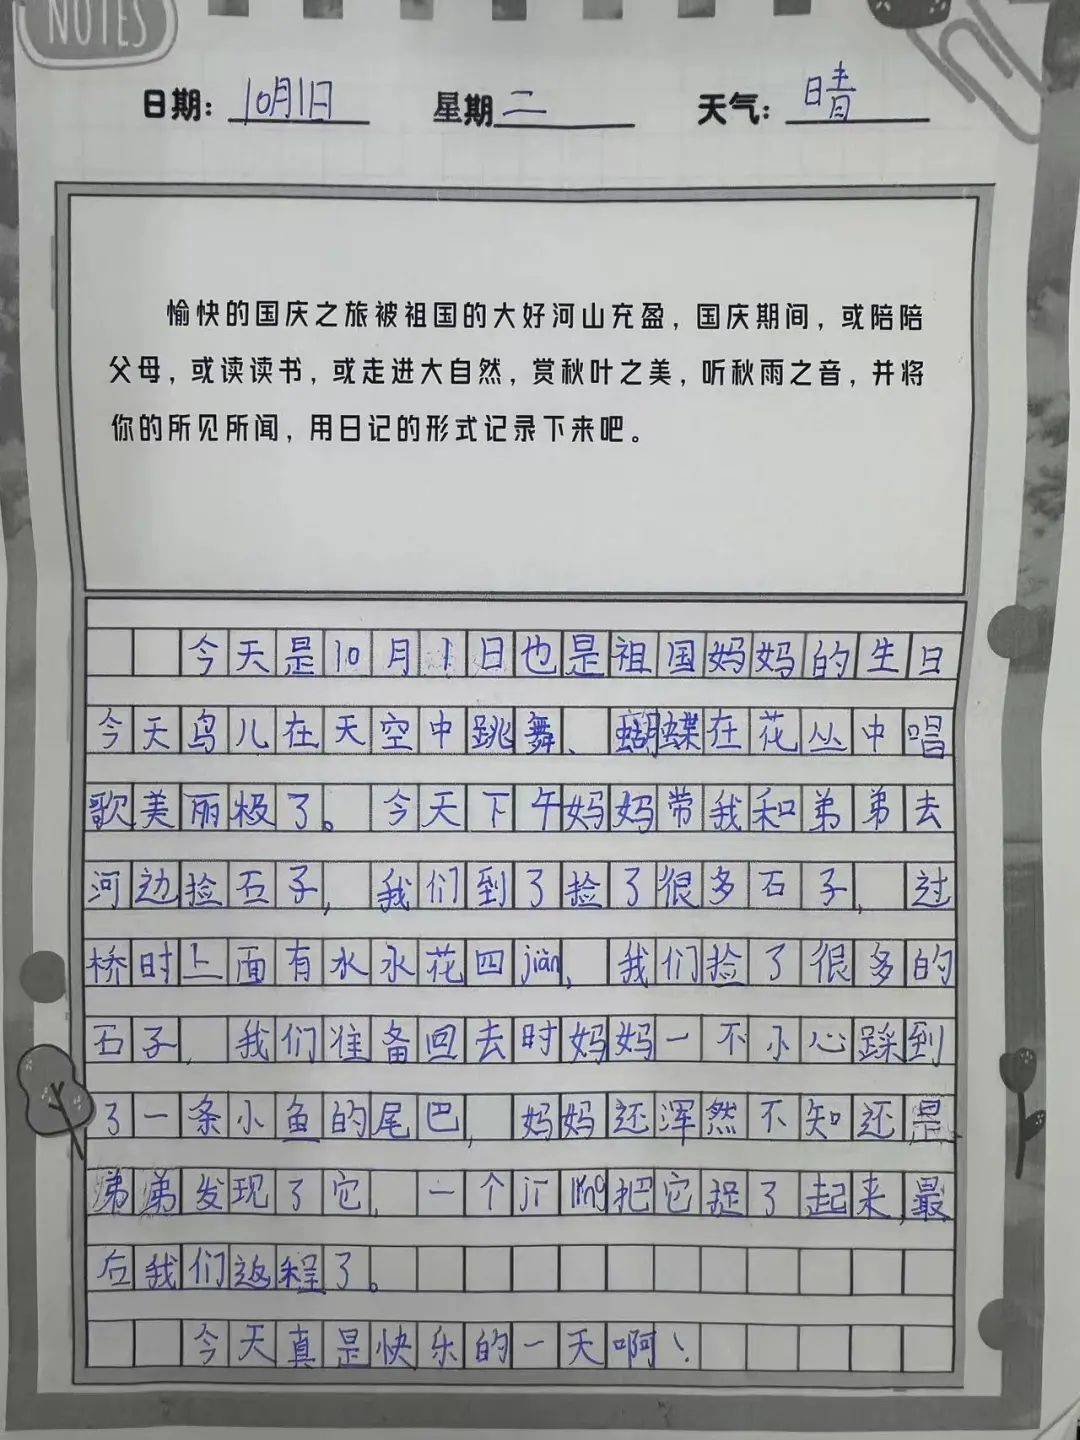 NOTES
日期：10月1日 星期二 天气：晴
愉快的国庆之旅被祖国的大好河山充盈，国庆期间，或陪陪
父母，或读读书，或走进大自然，赏秋叶之美，听秋雨之音，并将
你的所见所闻，用日记的形式记录下来吧。
今天是10月1日也是祖国妈妈的生日
今天鸟儿在天空中跳舞、蝴蝶在花丛中唱
歌美丽极了。今天下午妈妈带我和弟弟去
河边捡石子，我们到了捡了很多石子，过
桥时上面有水水花四jiàn，我们捡了很多的
石子，我们准备回去时妈妈一不小心踩到
了一条小鱼的尾巴，妈妈还浑然不知还是
弟弟发现了它，一个jī líng把它捉了起来，最
后我们返程了。
今天真是快乐的一天啊！